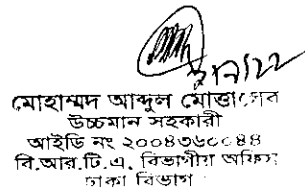 মোহাম্মদ আব্দুল মোত্তালেব
উচ্চমান সহকারী
আইডি নং ২০০৪৩৬৫৫৪৪
বি.আর.টি.এ. বিভাগীয় অফিস
ঢাকা বিভাগ